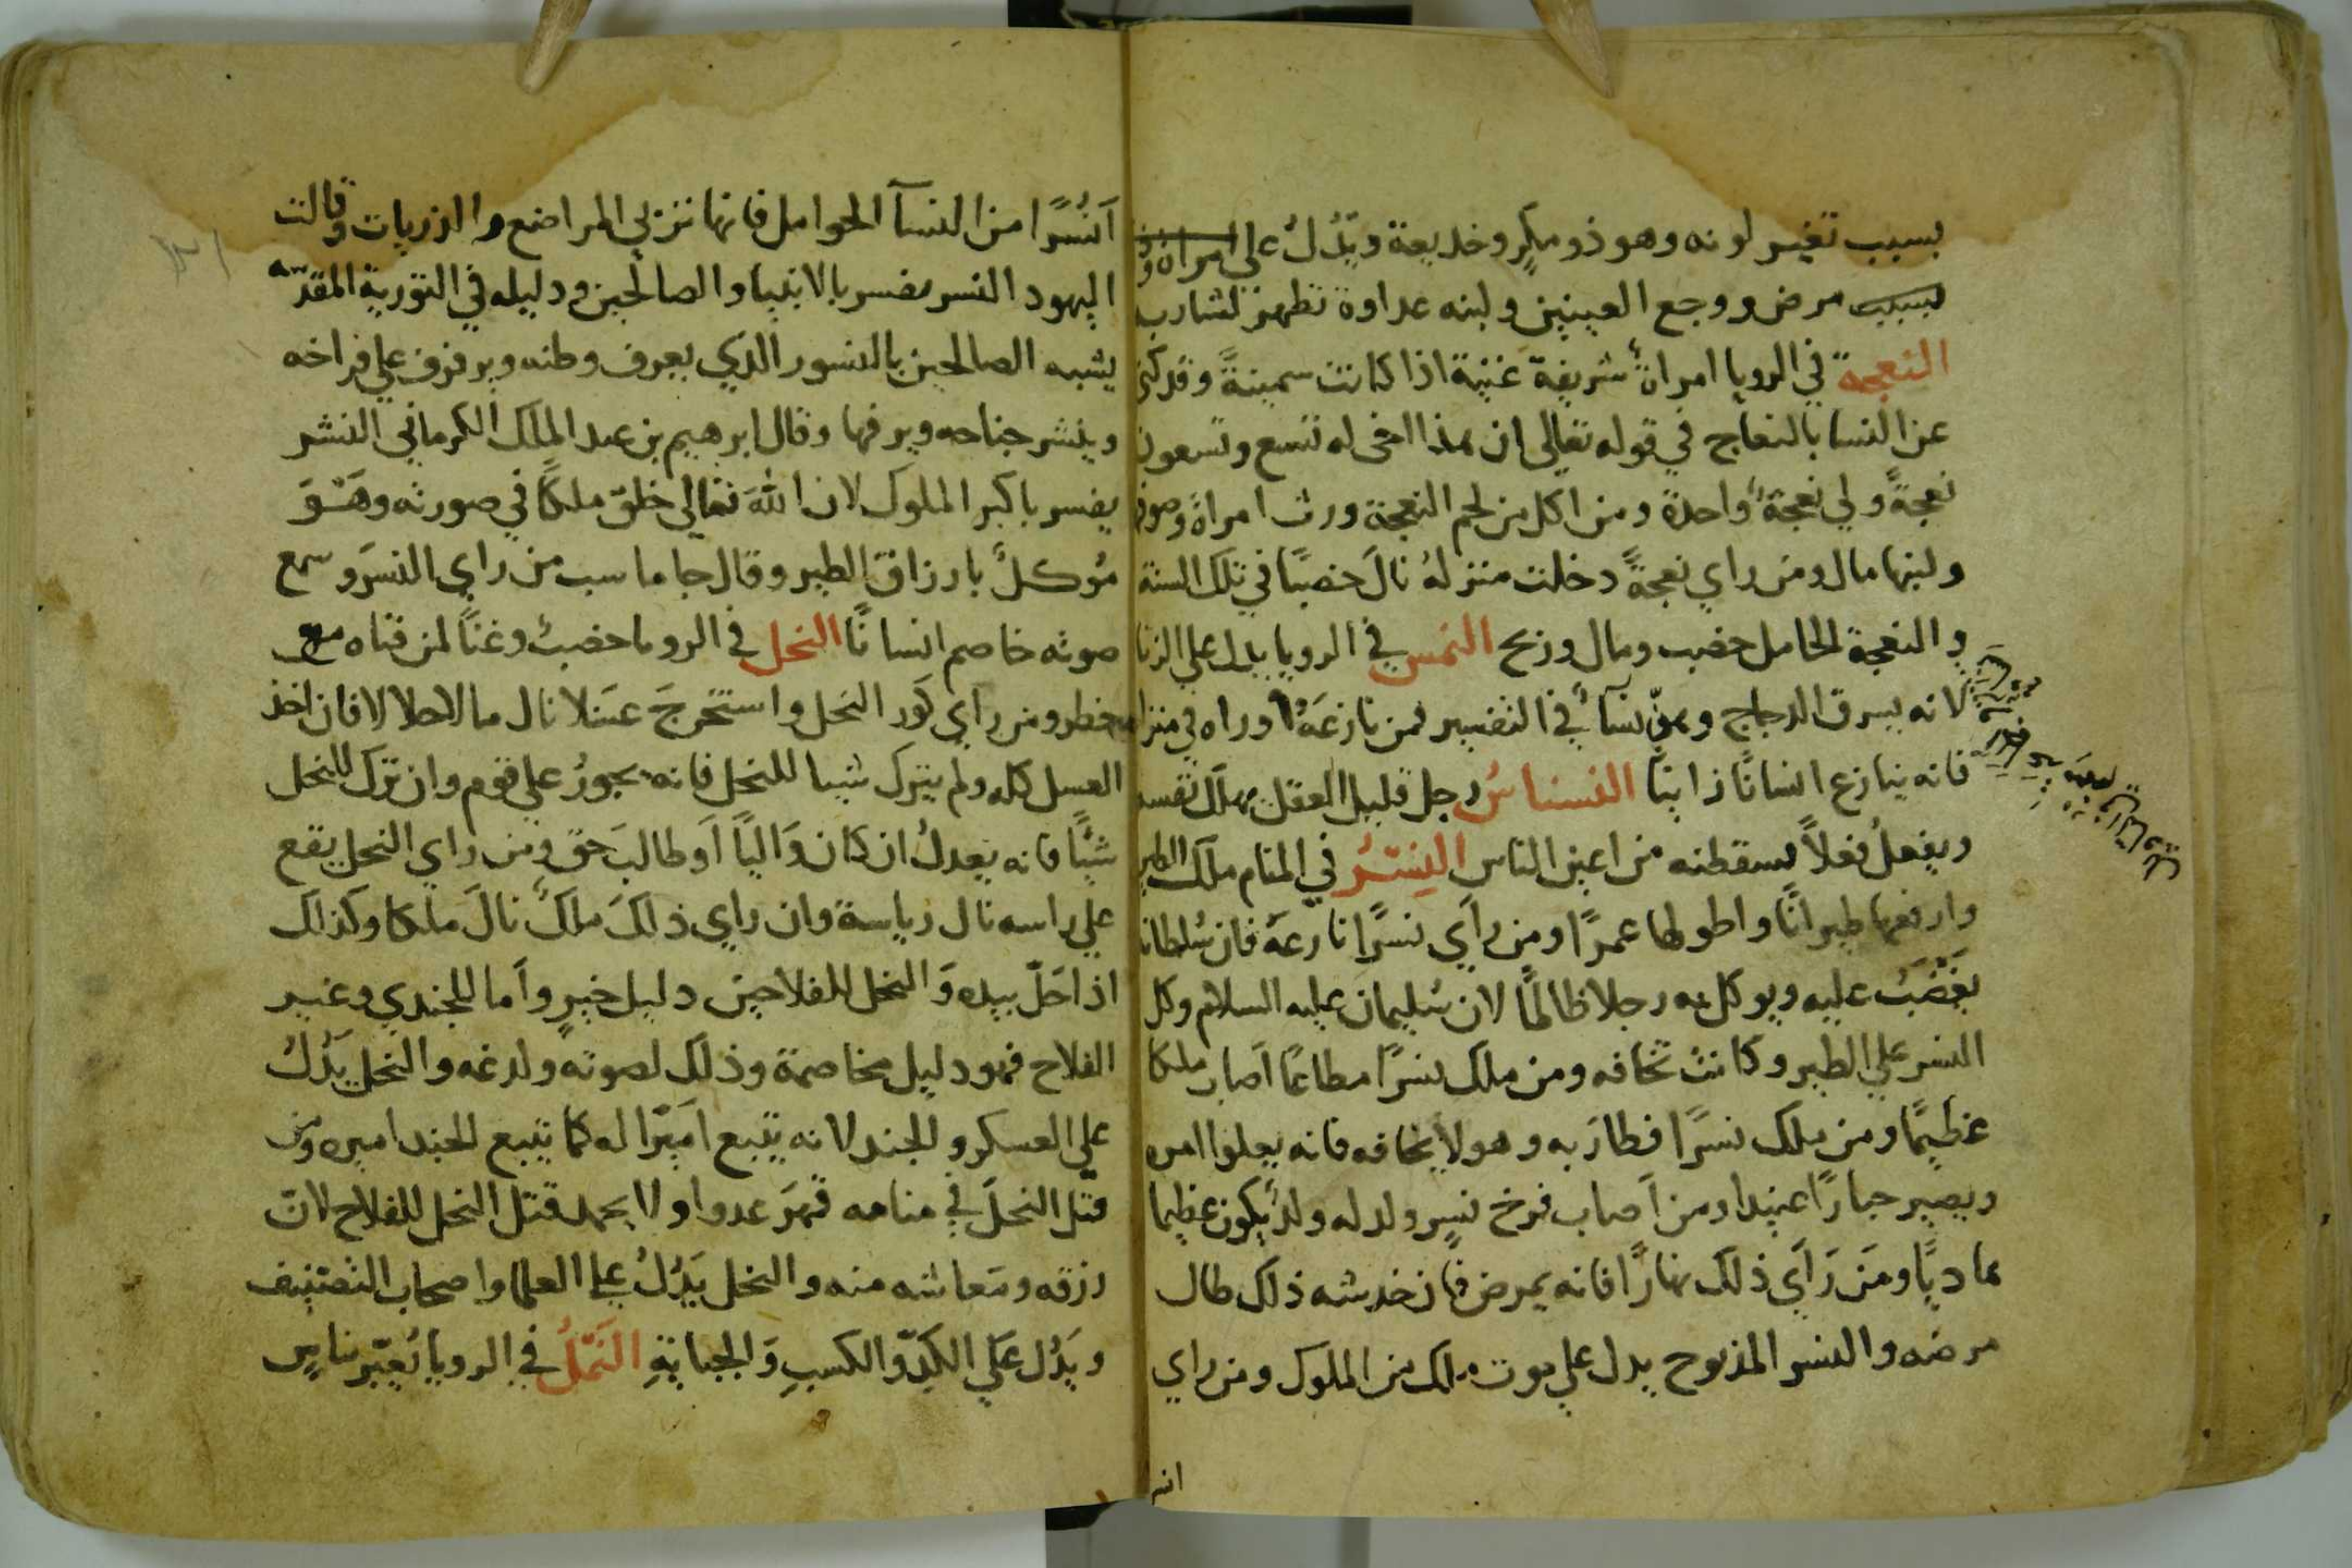 بسبب تغير لونه وهو ذو مكرٍ وخديعة ويَدُلُ علي امراة
مرض ووجع العينين ولبنه عداوة تظهر لشاربه
النعجة في الرويا امراةٌ شريفة غَنيّة اذا كانت سمينةً وقد كني
عن النسا بالنعاج في قوله تعالى ان هذا اخى له تسع وتسعون
نعجةً ولي نعجةٌ واحدة ومن اكل من لحم النعجة ورث امراة وصوفها
ولبنها مال ومن راي نعجةً دخلت منزله نالَ خصبًا في تلك السنة
و النعجة الحامل خصب ومال وربح النمس في الرويا يدل علي الزنا
لانه يسرق الدجاج وهنّ نسآءٌ في التفسير فمن نازعَهُ او راه في منزله
فانه ينازع انسانًا زانيًا النسناسُ رجل قليل العقل يهلك نفسه
ويفعلُ فعلاً يسقطه من اعين الناس النِسْرُ في المنام ملك الطير
وارفعها طيرانًا واطولها عمرًا ومن رآي نسرًا نازعهُ فان سُلطانا
يغضَبُ عليه ويوكل به رجلا ظالمًا لان سُليمان عليه السلام وكل
النسر علي الطير وكانت تخافه ومن ملك نسرًا مطاعًا اصاب ملكا
عظيمًا ومن ملك نسرًا فطارَ به وهو لا يخافه فانه يعلوا امره
ويصير جبارًا عنيدا ومن اصاب فرخ نسرٍ ولد له ولدٌ يكون عظيما
ومَن رَآي ذلك نهارًا فانه يمرض فان خدشه ذلك طال
مرضه والنسر المذبوح يدل علي موت ملك من الملوك ومن راي
آنسُرًا من النسآ الحوامل فانها تزني المراضع والدريات وقالت
اليهود النسر يفسر بالانبيا والصالحين ودليله في التورية المقدسه
يشبه الصالحين بالنسور الذي يعرف وطنه ويرفرف علي فراخه
وينشر جناحه ويرفها وقال ابرهيم بن عبد الملك الكرماني النسر
يفسر باكبر الملوك لان اللهَ تعالي خلق ملكًا في صورته وهَُوَ
مُوكلٌ بارزاق الطير وقال جاماسب من راي النسرَ وسمع
صوته خاصم انسانًا النحل في الرويا خصبٌ وغنًا لمن قناه مع
خطر ومن راي كَور النحل واستخرجَ عسَلا نال مالا حلالا فان اخذ
العسل كله ولم يترك شيا للنحل فانه يجورُ علي قوم وان ترك للنحل
شيًا فانه يعدلُ ان كان وَاليًا اَو طالبَ حق ومن راي النحل يقع
علي راسه نال رياسة وان راي ذلكَ ملكٌ نالَ ملكا وكذلك
اذا حَلّ بيده وَ النحل للفلاحين دليل خيرٍ واَما للجندي وغير
الفلاح فهو دليل مخاصمة وذلك لصوته ولدغه والنحل يَدُلُ
علي العسكر والجند لانه يتبع اميرًا له كما يتبع الجند اميره ومن
قتل النحلَ في منامه قهرَ عدوا ولا يحمد قتل النحل للفلاح لانّ
رزقه ومَعاشه منه والنحل يَدُلُ علي العلما واصحاب التصنيف
ويَدُل عَلي الكَدّ والكسبِ وَالجبايةِ النَمْلُ في الرويا يُعَبّر بناسٍ